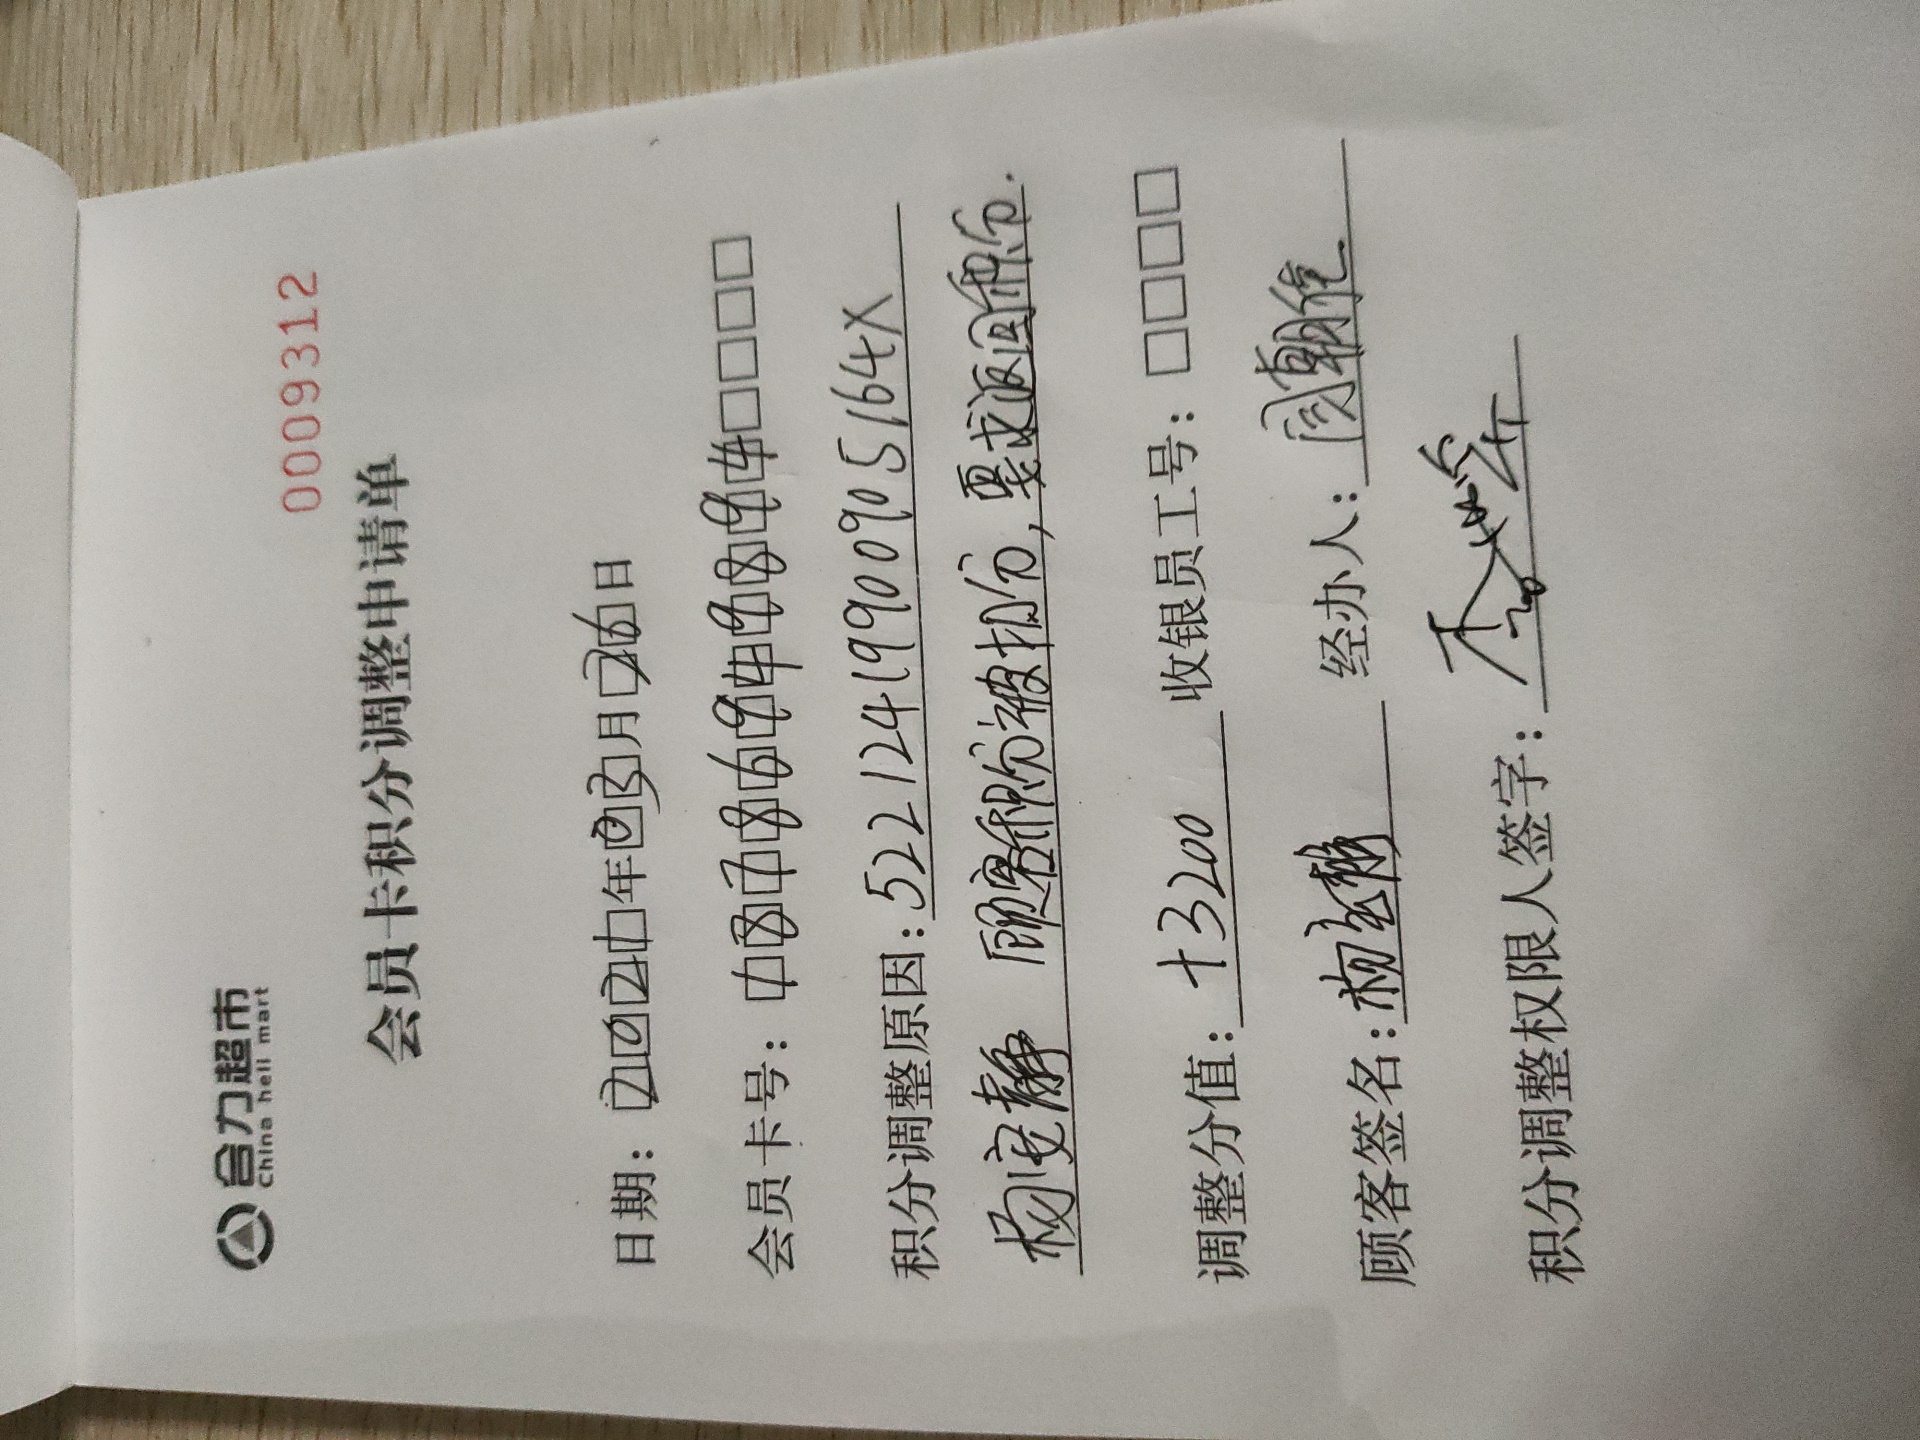 合力超市
China heli mart
0009312
会员卡积分调整申请单
日期：2021年03月26日
会员卡号：18786949894
积分调整原因：52212419900905164X
杨安静 顾客积分被扣分,要求返回积分.
调整分值：+3200 收银员工号：
顾客签名：杨安静 经办人：
积分调整权限人签字：